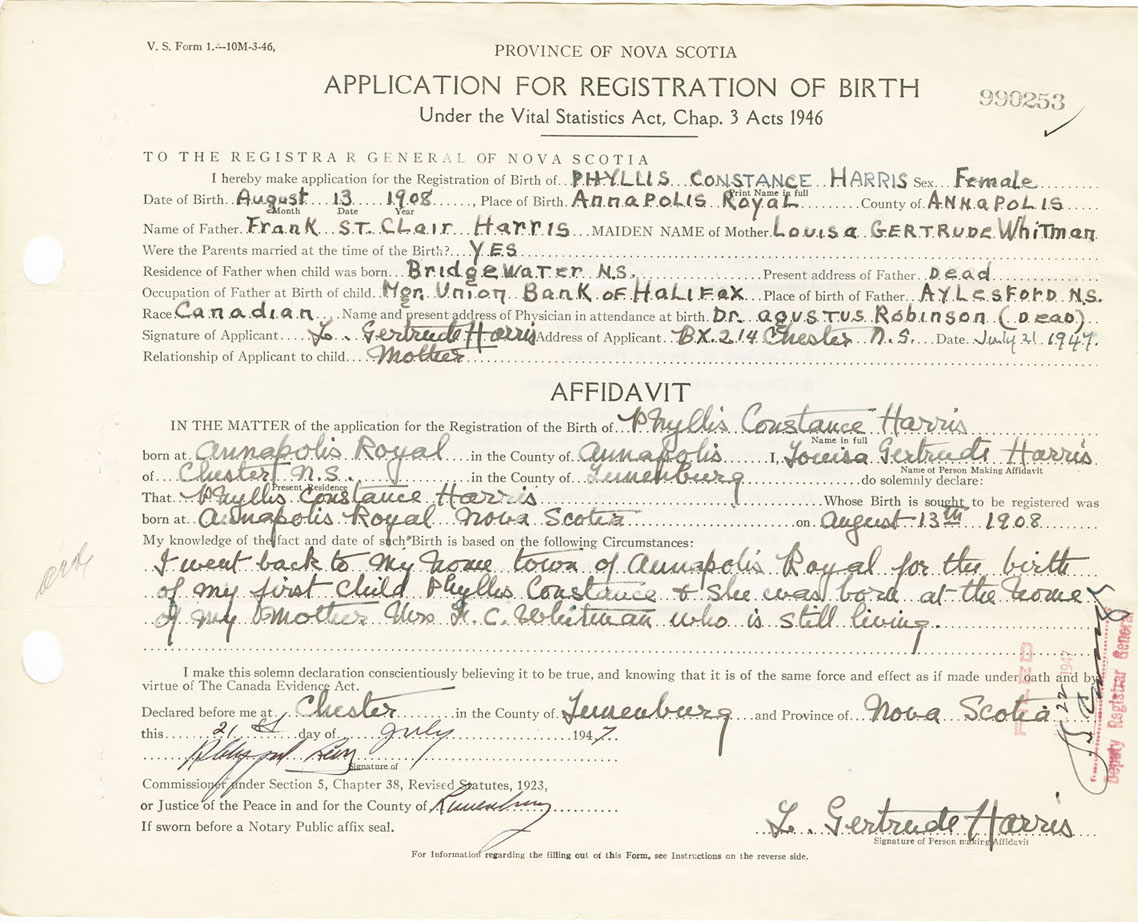 V. S. Form 1.—10M-3-46,
PROVINCE OF NOVA SCOTIA
APPLICATION FOR REGISTRATION OF BIRTH
990253
Under the Vital Statistics Act, Chap. 3 Acts 1946
TO THE REGISTRAR GENERAL OF NOVA SCOTIA
I hereby make application for the Registration of Birth of PHYLLIS CONSTANCE HARRIS Sex Female
Print Name in full
Date of Birth August 13 1908, Place of Birth ANNAPOLIS ROYAL County of ANNAPOLIS
Month Date Year
Name of Father Frank ST. Clair Harris MAIDEN NAME of Mother Louisa GERTRUDE Whitman
Were the Parents married at the time of the Birth? YES
Residence of Father when child was born Bridgewater N.S. Present address of Father Dead
Occupation of Father at Birth of child Mgr. Union Bank of Halifax Place of birth of Father AYLESFORD N.S.
Race Canadian Name and present address of Physician in attendance at birth Dr. Agustus Robinson (Dead)
Signature of Applicant L. Gertrude Harris Address of Applicant BX. 214 Chester N.S. Date July 21 1947.
Relationship of Applicant to child Mother
AFFIDAVIT
IN THE MATTER of the application for the Registration of the Birth of Phyllis Constance Harris
Name in full
born at Annapolis Royal in the County of Annapolis I, Louisa Gertrude Harris
Name of Person Making Affidavit
of Chester N.S. in the County of Lunenburg do solemnly declare:
Present Residence
That Phyllis Constance Harris Whose Birth is sought to be registered was
born at Annapolis Royal Nova Scotia on August 13th 1908
My knowledge of the fact and date of such Birth is based on the following Circumstances:
I went back to my home town of Annapolis Royal for the birth
of my first child Phyllis Constance & she was born at the home
of my Mother Mrs F. C. Whitman who is still living.
I make this solemn declaration conscientiously believing it to be true, and knowing that it is of the same force and effect as if made under oath and by
virtue of The Canada Evidence Act.
Declared before me at Chester in the County of Lunenburg and Province of Nova Scotia
this 21st day of July 1947.
Signature of
Commissioner under Section 5, Chapter 38, Revised Statutes, 1923,
or Justice of the Peace in and for the County of Lunenburg
If sworn before a Notary Public affix seal.
L. Gertrude Harris
Signature of Person making Affidavit
For Information regarding the filling out of this Form, see Instructions on the reverse side.
FILED
22 1947
Deputy Registrar General